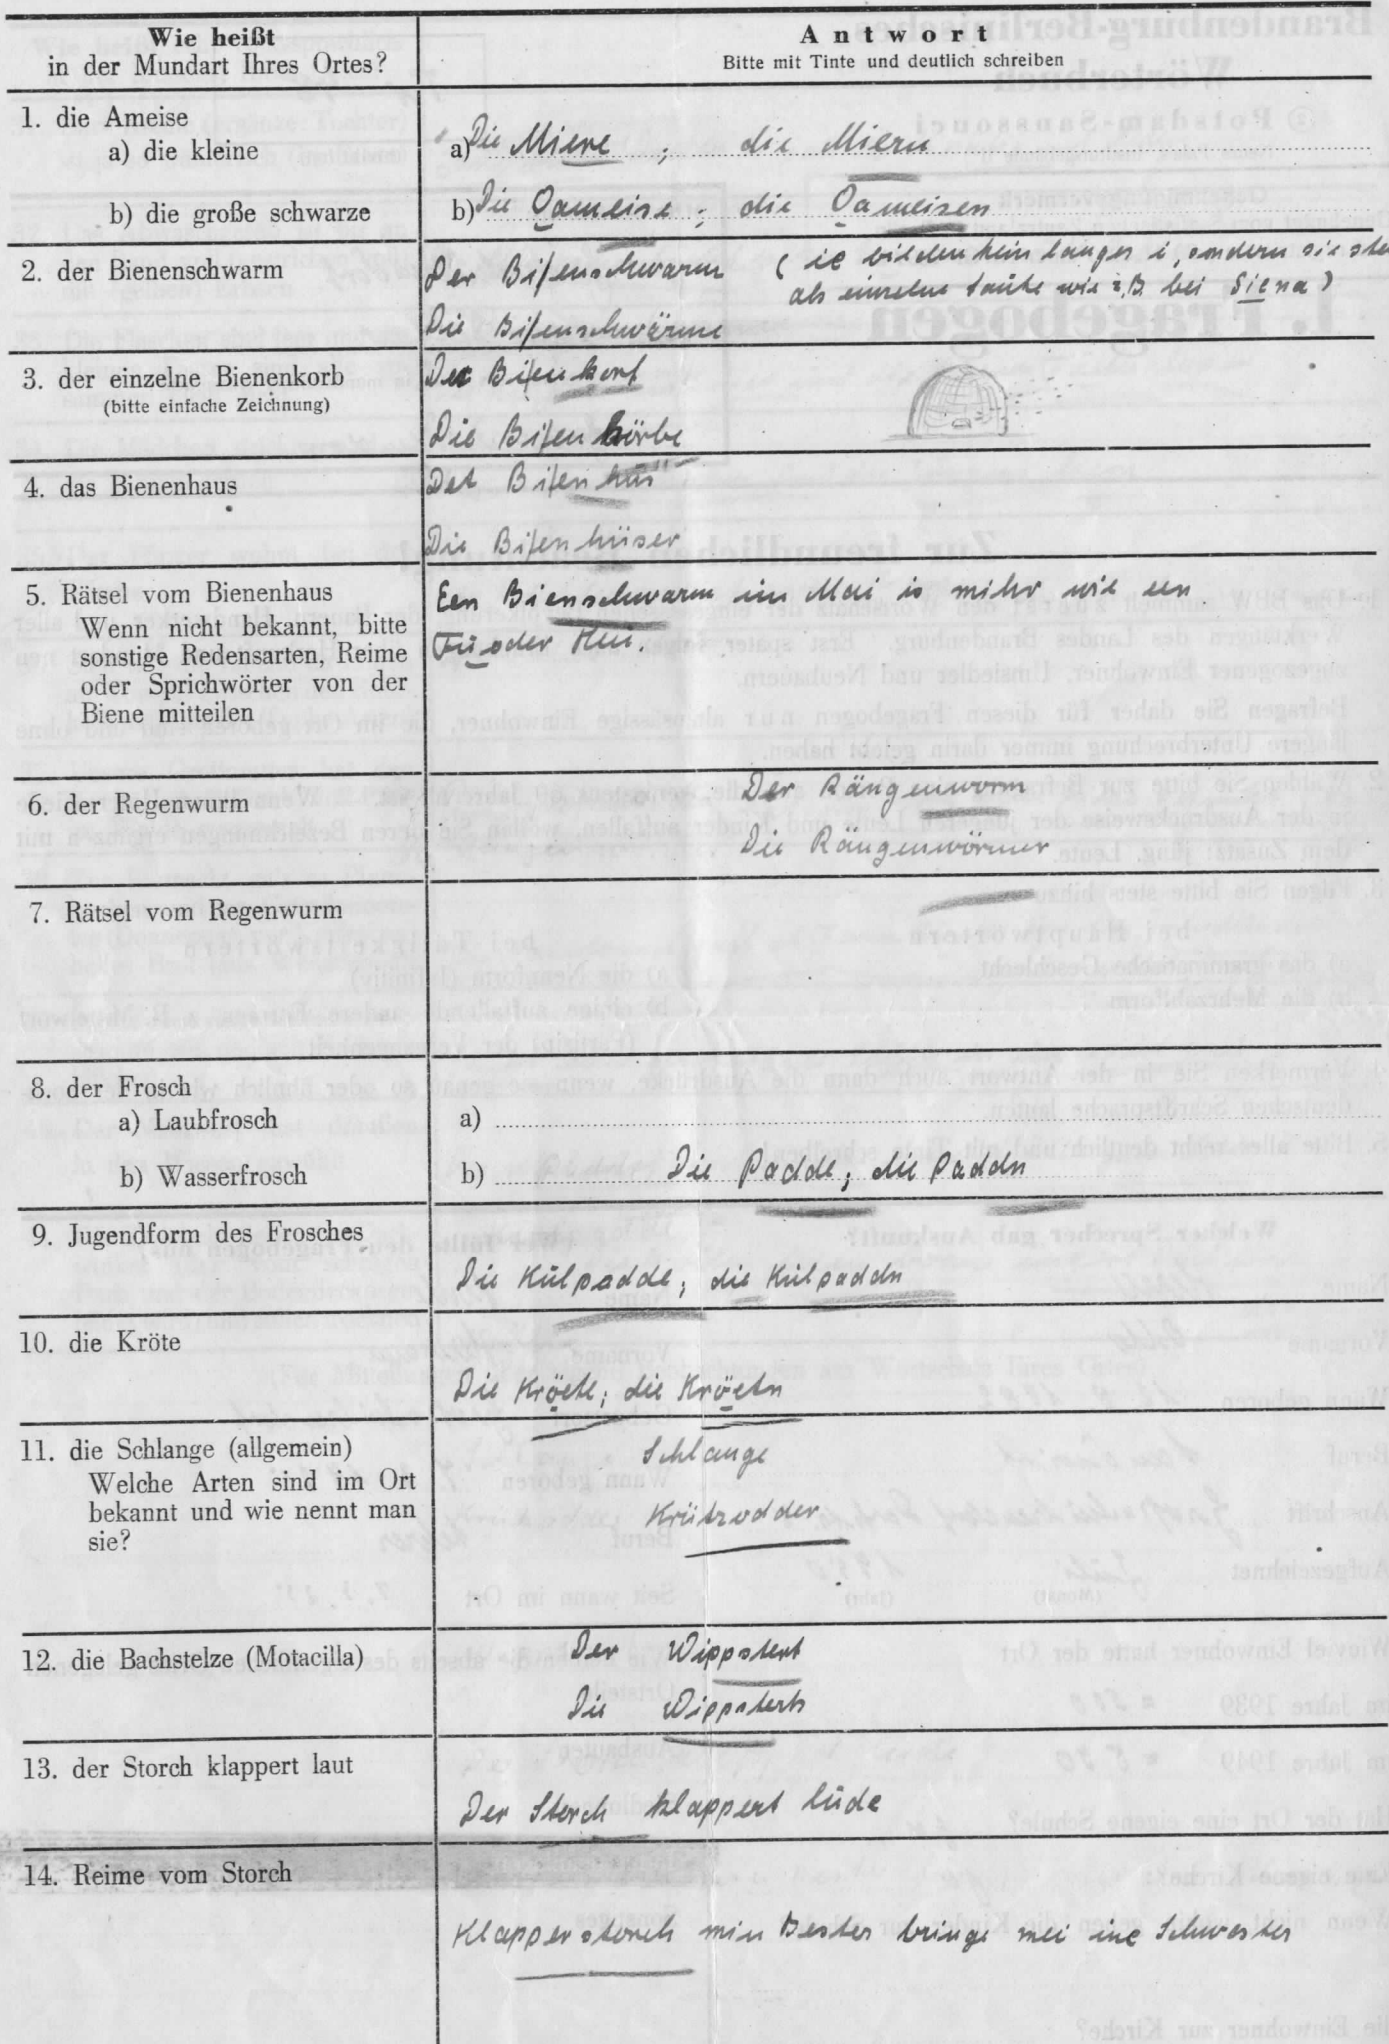 Wie heißt
in der Mundart Ihres Ortes?
Antwort
Bitte mit Tinte und deutlich schreiben
1. die Ameise
a) die kleine
a) Die Miere ; die Miern
b) die große schwarze
b) Die Oameise ; die Oameisen
2. der Bienenschwarm
Der Bienschwarm (ie bilden kein langes i, sondern sie ste
als einzelne Laute wie z.B. bei Siena)
Die Bienschwärme
3. der einzelne Bienenkorb
(bitte einfache Zeichnung)
Der Bienkorf
Die Bienkörbe
4. das Bienenhaus
Det Bienhus
Die Bienhüser
5. Rätsel vom Bienenhaus
Wenn nicht bekannt, bitte
sonstige Redensarten, Reime
oder Sprichwörter von der
Biene mitteilen
Een Bienschwarm im Mai is mihr wie een
Fuoder Heu.
6. der Regenwurm
Der Rängenworm
Die Rängenwörmer
7. Rätsel vom Regenwurm
8. der Frosch
a) Laubfrosch
a)
b) Wasserfrosch
b) Die Padde; die Paddn
9. Jugendform des Frosches
Die Külpadde; die Külpaddn
10. die Kröte
Die Kröete; die Kröetn
11. die Schlange (allgemein)
Welche Arten sind im Ort
bekannt und wie nennt man
sie?
Schlange
Krützodder
12. die Bachstelze (Motacilla)
Der Wippstert
Die Wippsterts
13. der Storch klappert laut
Der Storch klappert lude
14. Reime vom Storch
Klapperstorch min Bester bringe mei ine Schwester